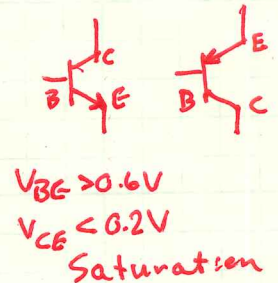 C E
B E B C
V_BE >0.6V
V_CE < 0.2V
Saturation